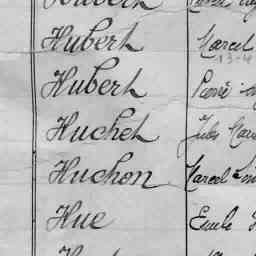 Hubert Marcel
13-4
Hubert Pierre
Huchet Jules
Huchon Marcel
Hue Emile